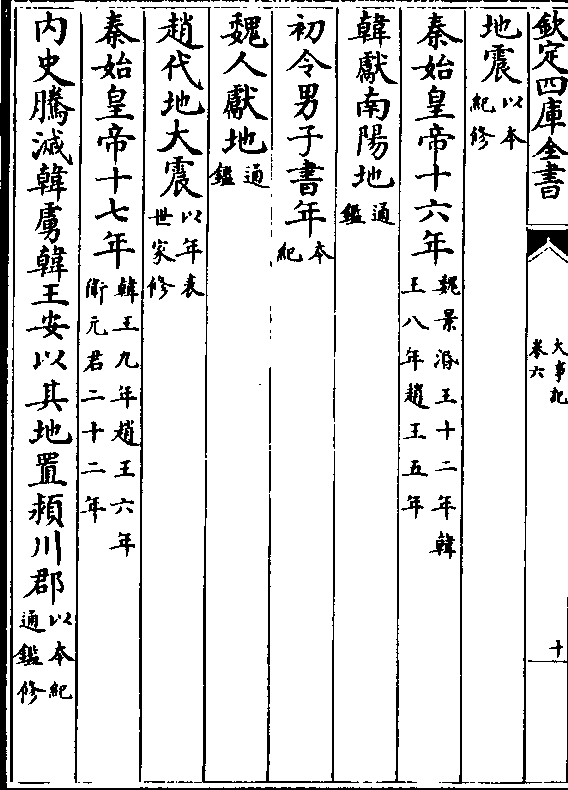 欽定四庫全書
大事記
卷六
十
地震以本紀修
秦始皇帝十六年魏景湣王十二年韓王八年趙王五年
韓獻南陽地通鑑
初令男子書年本紀
魏人獻地通鑑
趙代地大震以年表世家修
秦始皇帝十七年韓王九年趙王六年衛元君二十二年
内史騰滅韓虜韓王安以其地置潁川郡以本紀通鑑修